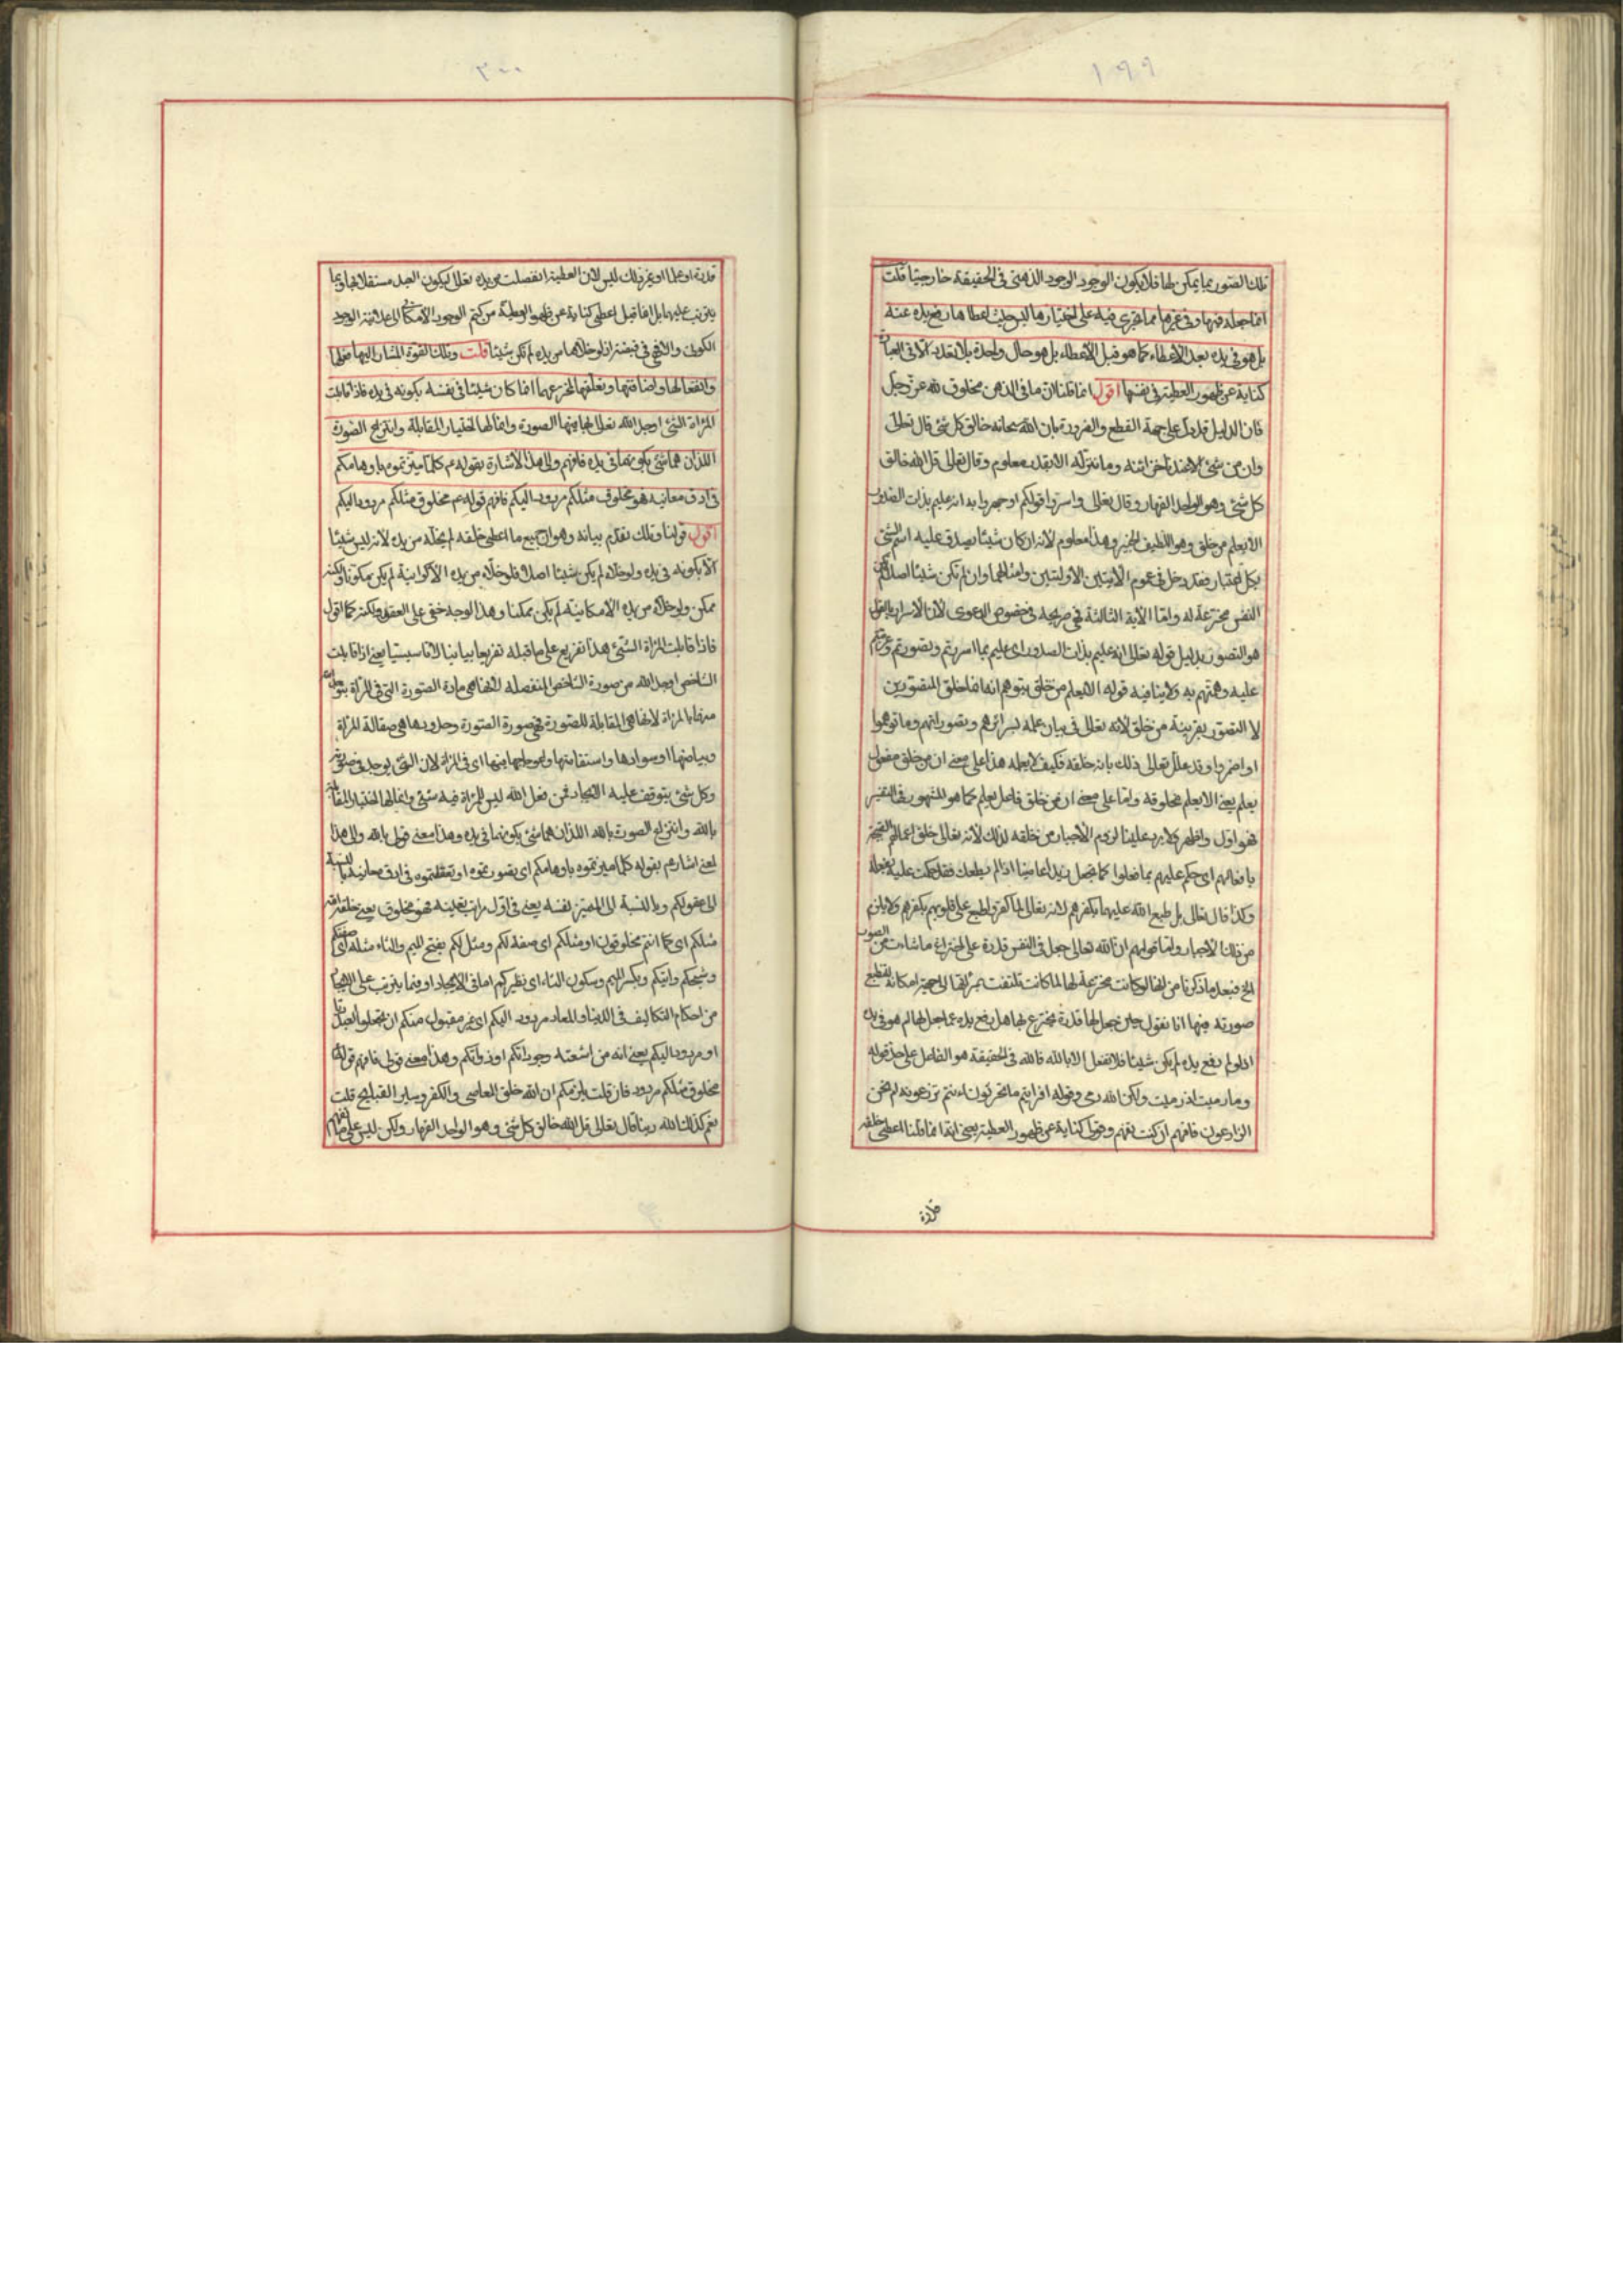 ١٩٩
تلك الصور بما يمكن لها فلا يكون الوجود الوجود الذهني في الحقيقة خارجيا قلت
انما جعله فيها وفي غيرها مما تجري فيه على اختيارها ليس حيث اعطاها رفع يده عنه
بل هو في يده بعد الاعطاء كما هو قبل الاعطاء بل هو حال واحدة بلا تعدد الا في العبارة
كناية عن ظهور العطية في نفسها اقول انما قلنا ان ما في الذهن مخلوق لله عز وجل
فان الدليل قد دل على جهة القطع والضرورة بان الله سبحانه خالق كل شئ قال تعالى
وان من شئ الا عندنا خزائنه وما ننزله الا بقدر معلوم وقال تعالى قل الله خالق
كل شئ وهو الواحد القهار وقال تعالى واسروا قولكم او اجهروا به انه عليم بذات الصدور
الا يعلم من خلق وهو اللطيف الخبير وهذا معلوم لانه ان كان شيئا يصدق عليه اسم الشئ
بكل اعتبار فقد دخل في عموم الايتين الاوليتين وامثالهما وان لم تكن شيئا اصلا لم تكن
النفس مخترعة له واما الآية الثالثة فهي صريحة في خصوص الدعوى لان الاسرار بالقول
هو التصور بدليل قوله تعالى انه عليم بذات الصدور اى عليم بما اسررتم وتصورتم وعزمتم
عليه وهممتم به ولا ينافيه قوله الا يعلم من خلق بتوهم انه انما خلق المتصورين
لا التصور بقرينة من خلق لانه تعالى في بيان علمه بسرائرهم وتصوراتهم وما توهموا
او اضمروا وقد علل تعالى ذلك بانه خلقه فكيف لا يعلمه هذا على معنى ان من خلق مفعول
يعلم يعنى الا يعلم مخلوقه واما على معنى ان من خلق فاعل يعلم كما هو المشهور في التفسير
فهو اول واظهر ولا يرد علينا لزوم الاجبار من خلقه لذلك لانه تعالى خلق اعمالهم القبيحة
بافعالهم اى حكم عليهم بما فعلوا كما تجعل زيدا عاصيا اذا لم يطعك فقد حكمت عليه بفعله
وكذا قال تعالى بل طبع الله عليها بكفرهم لانه تعالى لما كفروا طبع على قلوبهم بكفرهم ولا يلزم
من ذلك الاجبار واما قولهم ان الله تعالى جعل في النفس قدرة على اختراع ما شاءت من الصور
الخ فبعد ما ذكرنا من انها لو كانت مخترعة لها لما كانت تلتفت بمرآتها الى جهة امكانه لتطبع
صورته فيها انا نقول حين جعل لها قدرة تخترع بها هل رفع يده عما جعل لها ام هو في يده
اذ لو لم يرفع يده لم يكن شيئا فلا تفعل الا بالله فالله في الحقيقة هو الفاعل على حد قوله
وما رميت اذ رميت ولكن الله رمى وقوله افرايتم ما تحرثون ءانتم تزرعونه ام نحن
الزارعون فافهم ان كنت تفهم وقولي كناية عن ظهور العطية يعنى انما قلنا اعطى خلقه
قدرة
٢٠٠
قدرة او علما او غير ذلك ليس لان العطية انفصلت من يده تعالى ليكون العبد مستقلا بها وبما
يترتب عليها بل انما قيل اعطى كناية عن ظهور العطية من كتم الوجود الامكاني الى علانية الوجود
الكوني والا فهي في قبضته اذ لو خلاها من يده لم تكن شيئا قلت وتلك القوة المشار اليها بفعلها
وانفعالها واضافتها وتعلقها المخترع بهما انما كان شيئا في نفسه بكونه في يده فاذا قابلت
المرآة الشئ اوجد الله تعالى بها فيها الصورة وانما لها اختيار المقابلة وانتزاع الصورة
اللذان هما شئ بكونهما في يده فافهم والى هذا الاشارة بقوله ع كلما ميزتموه باوهامكم
في ادق معانيه فهو مخلوق مثلكم مردود اليكم فافهم قوله ع مخلوق مثلكم مردود اليكم
اقول قولنا وتلك تقدم بيانه وهو ان جميع ما اعطى خلقه لم يخله من يده لانه ليس شيئا
الا بكونه في يده ولو خلاه لم يكن شيئا اصلا فلو خلاه من يده الاكوانية لم يكن مكونا ولكنه
ممكن ولو خلاه من يده الامكانية لم يكن ممكنا وهذا الوجه خفي على العقول ولكنه كما اقول
فاذا قابلت المرآة الشئ هذا تفريع على ما قبله تفريعا بيانيا لا تاسيسيا يعنى اذا قابلت
الشاخص اوجد الله من صورة الشاخص المنفصلة لانها هي مادة الصورة التي في المرآة
بالمرآة لانها هي المقابلة للصورة فهي صورة الصورة وحدودها هي صقالة المرآة
وبياضها او سوادها واستقامتها واعوجاجها فيها اى في المرآة لان الشئ يوجد في
وكل شئ يتوقف عليه الايجاد فمن فعل الله ليس للمرآة فيه شئ وانما لها اختيار المقابلة
بالله وانتزاع الصورة بالله اللذان هما شئ بكونهما في يده وهذا معنى قولي بالله والى هذا
المعنى اشار ع بقوله كلما ميزتموه باوهامكم اى تصورتموه او تعقلتموه في ادق معانيه بالنسبة
الى عقولكم وبالنسبة الى المميز نفسه يعنى في اول مراتب تعينه فهو مخلوق يعنى خلقه الله
مثلكم اى كما انتم مخلوقون او مثلكم اى صفة لكم ومثل لكم بفتح الميم والثاء مثله اى صفتكم
وشبحكم وآيتكم وبكسر الميم وسكون الثاء اى نظيركم اما في الايجاد او فيما يترتب على الايجاد
من احكام التكاليف في الدنيا والمعاد مردود اليكم اى غير مقبول منكم ان تجعلوا
او مردود اليكم يعنى انه من اشعة وجوداتكم او ذواتكم وهذا معنى قولي فافهم قوله ع
مخلوق مثلكم مردود فان قلت يلزمكم ان الله خلق المعاصي والكفر وساير القبايح قلت
نعم كذلك الله ربنا قال تعالى قل الله خالق كل شئ وهو الواحد القهار ولكن ليس على ما